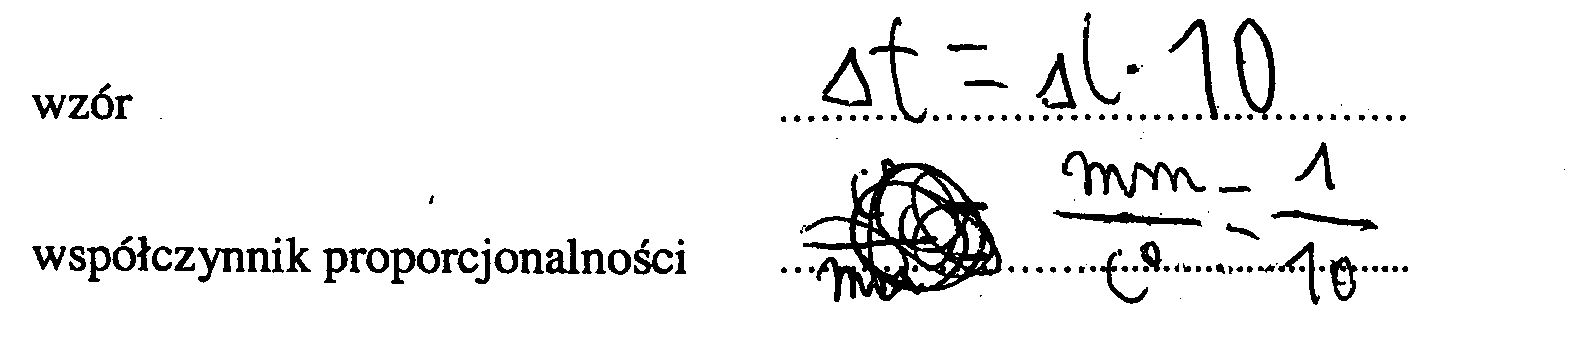 wzór Δt = Δl · 10
współczynnik proporcjonalności mm/C° = 1/10